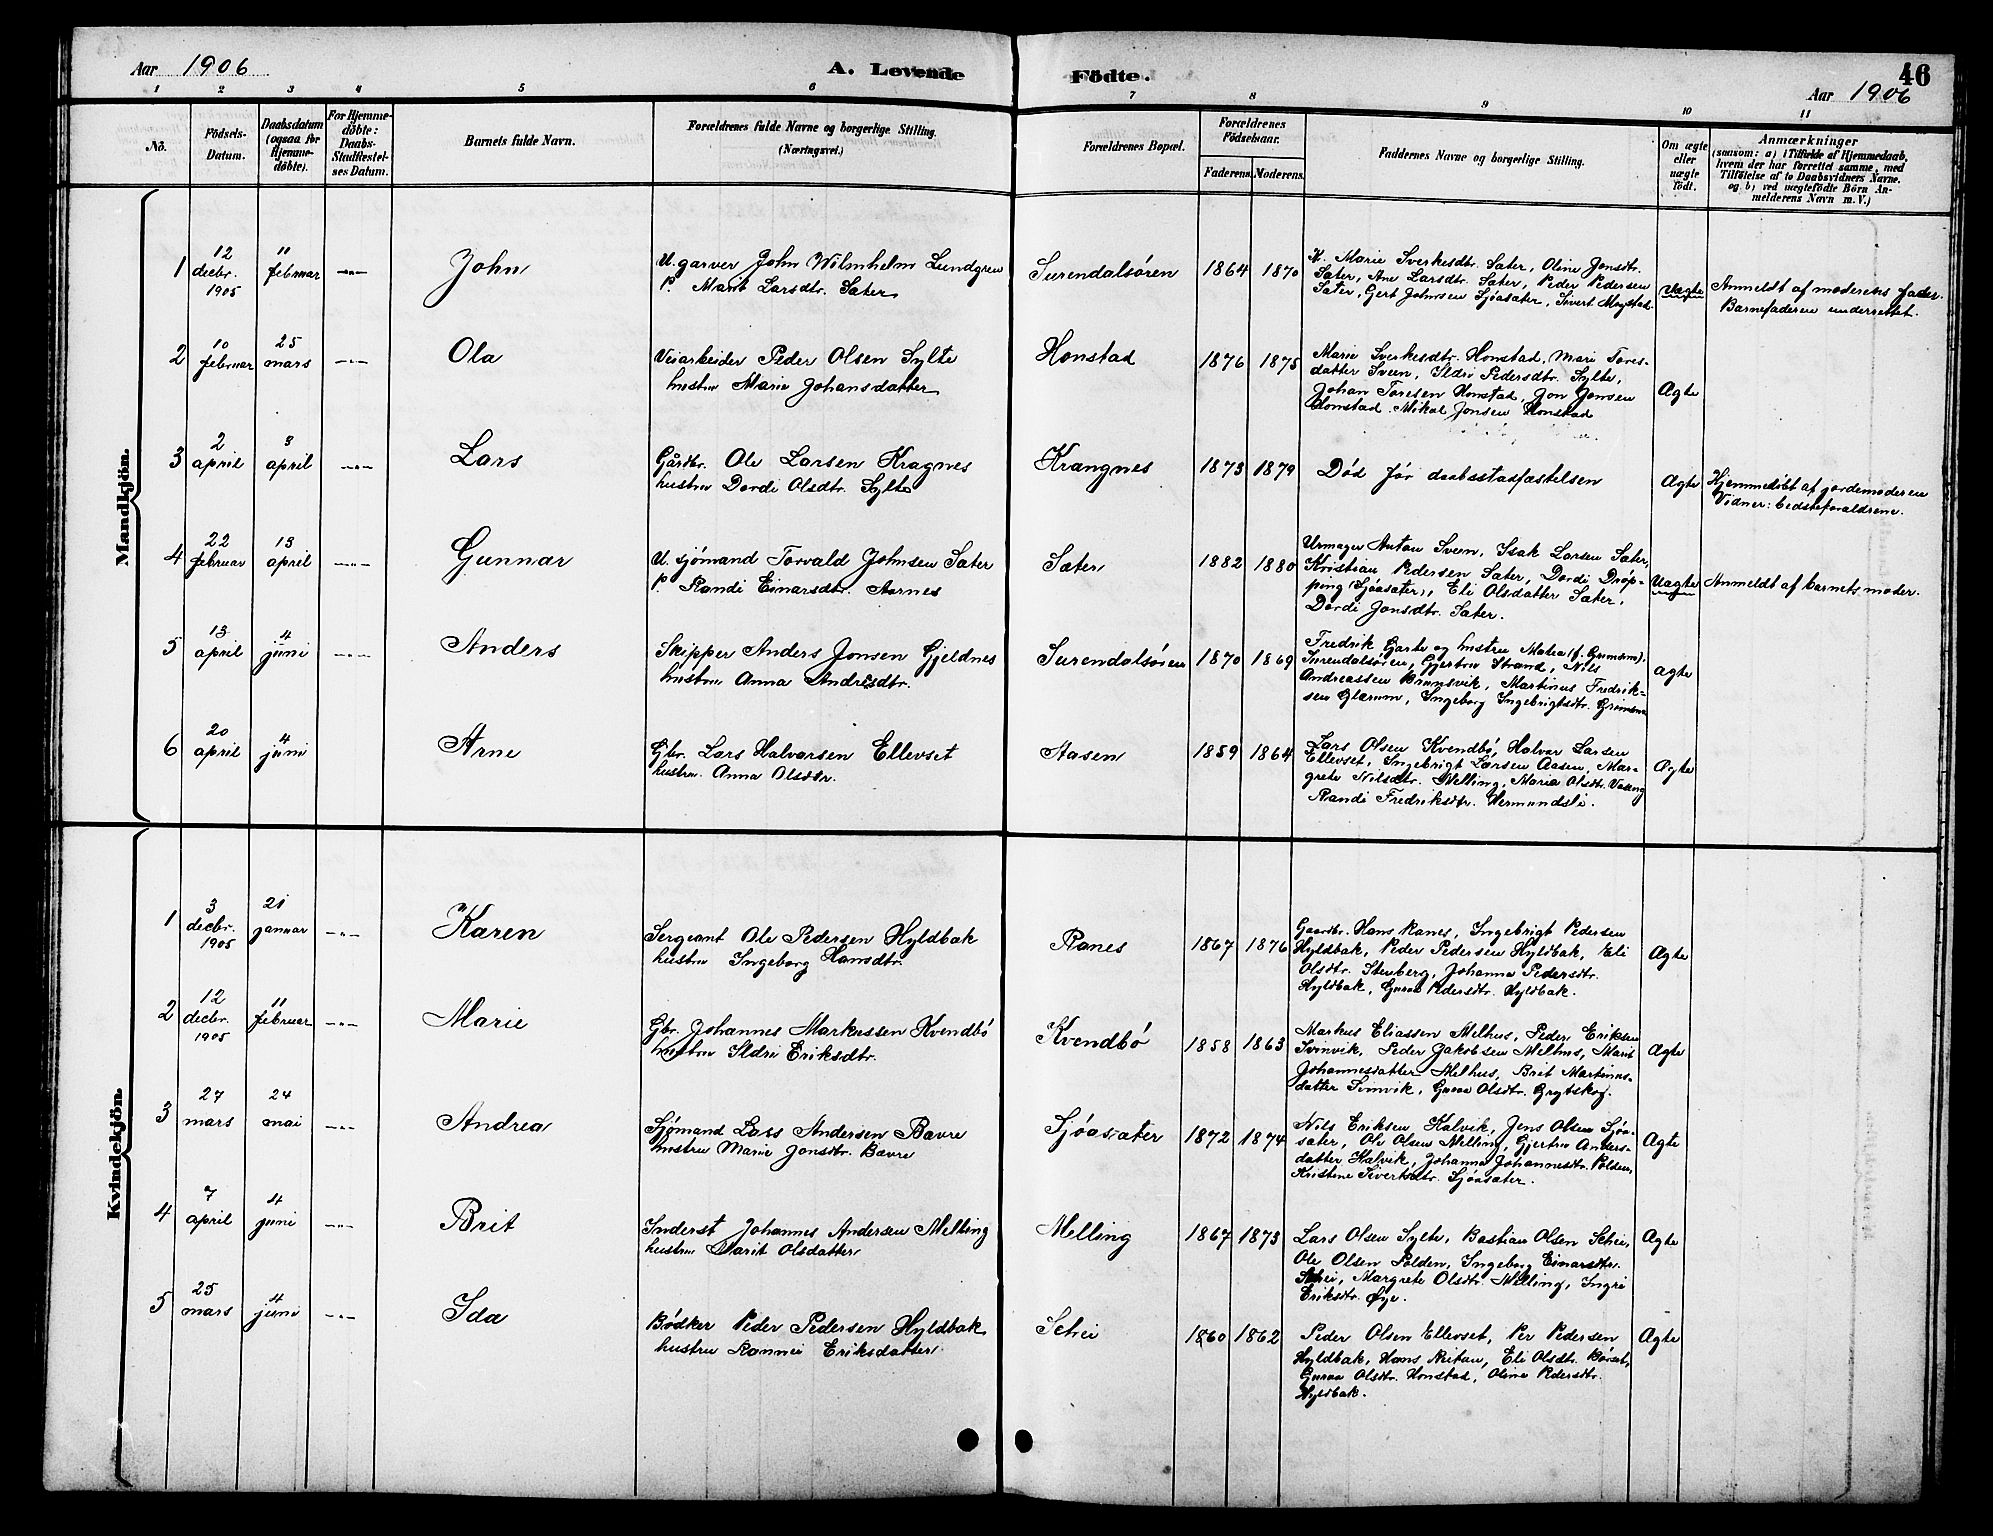 Aar 1906
A. Levende
Födte.
46
Aar 1906
1 2 3 4 5 6 7 8 9 10 11
No.
Födsels-Datum.
Daabsdatum (ogsaa for Hjemmedøbte).
For Hjemmedøbte: Daabs-Stadfæstelses Datum.
Barnets fulde Navn.
Forældrenes fulde Navne og borgerlige Stilling.
(Næringsvei.)
Forældrenes Bopæl.
Forældrenes Födselsaar.
Faderens. Moderens.
Faddernes Navne og borgerlige Stilling.
Om ægte eller uægte födt.
Anmærkninger
(saasom: a) i Tilfælde af Hjemmedaab,
hvem der har forrettet samme, med
Tilföielse af to Daabsvidners Navne,
og b) ved uægtefödte Börn An-
melderens Navn m. V.)
Mandkjön.
1
12 decbr. 1905
11 februar
John
U. garver John Wilmhelm Lundgren
P. Marit Larsdtr. Sæter
Surendalsören
1864 1870
K. Marie Sverkesdtr. Sæter, Oline Jonsdtr.
Sæter, Ane Larsdtr. Sæter, Peder Pedersen
Sæter, Gert Johnsen Sjöasæter, Sivert Mogstad.
Uægte
Anmeldt af moderens fader.
Barnefaderen underrettet.
2
10 februar
25 mars
Ola
Veiarbeider Peder Olsen Sylte
hustru Marie Johansdatter
Honstad
1876 1875
Marie Sverkesdtr. Honstad, Mari Tores-
datter Sveen, Ildri Pedersdtr. Sylte,
Johan Toresen Honstad, Jon Jonsen
Honstad, Mikal Jonsen Honstad
Ægte
3
2 april
8 april
Lars
Gårdbr. Ole Larsen Kragnes
hustru Dordi Olsdtr. Sylte
Krangnes
1873 1879
Död før daabsstadfæstelsen
Ægte
Hjemmedöbt af jordemoderen
Vidner: bedsteforældrene.
4
22 februar
13 april
Gunnar
U. sjömand Torvald Johnsen Sæter
P. Randi Einarsdtr. Aarnes
Sæter
1882 1880
Urmager Anton Sveen, Isak Larsen Sæter,
Kristian Pedersen Sæter, Dordi Dröp-
ping (Sjöasæter), Eli Olsdatter Sæter,
Dordi Jonsdtr. Sæter.
Uægte
Anmeldt af barnets moder.
5
13 april
4 juni
Anders
Skipper Anders Jonsen Gjeldnes
hustru Anna Andrèsdtr.
Surendalsören
1870 1869
Fredrik Garte og hustru Matea (f. Grimsmo),
Surendalsören, Gjertru Strand, Nils
Andreassen Brunsvik, Martinus Fredrik-
sen Glærum, Ingeborg Ingebrigtsdtr. Grimsmo
Ægte
6
20 april
4 juni
Arne
Gbr. Lars Halvorsen Ellevset
hustru. Anna Olsdtr.
Aasen
1859 1864
Lars Olsen Kvendbö, Halvor Larsen
Ellevset, Ingebrigt Larsen Aasen, Mar-
grete Nilsdtr. Melling, Maria Olsdtr.
Randi Fredriksdtr. Hermundsli.
Ægte
Kvindekjön.
1
3 decbr. 1905
21 januar
Karen
Sergeant Ole Pedersen Hyldbak
hustru Ingeborg Hansdtr.
Ranes
1867 1876
Gaardbr. Hans Ranes, Ingebrigt Pedersen
Hyldbak, Peder Pedersen Hyldbak, Eli
Olsdtr. Stenberg, Johanna Pedersdtr.
Hyldbak, Guroe Pedersdtr. Hyldbak.
Ægte
2
12 decbr. 1905
11 februar
Marie
Gbr. Johannes Markussen Kvendbö
hustru Ildri Eriksdtr.
Kvendbö
1858 1863
Markus Eliassen Melhus, Peder Eriksen
Svinvik, Peder Jakobsen Melhus, Marit
Johannesdatter Melhus, Brit Martinus-
datter Svinvik, Guroe Olsdtr. Grytskog.
Ægte
3
27 mars
24 mai
Andrea
Sjömand Lars Andersen Bævre
hustru Marie Jonsdtr. Bævre
Sjöasæter
1872 1874
Nils Eriksen Halvik, Jens Olsen Sjöa-
sæter, Ole Olsen Melling, Gjertru Anders-
datter Halvik, Johanna Johannesdtr. Polden,
Kristine Sivertsdtr. Sjöasæter.
Ægte
4
7 april
4 juni
Brit
Inderst Johannes Andersen Melling
hustru Marit Olsdatter
Melling
1867 1873
Lars Olsen Sylte, Bastian Olsen Schei,
Ole Olsen Polden, Ingeborg Einarsdtr.
Schei, Margrete Olsdtr. Melling, Ingri
Eriksdtr. Øye.
Ægte
5
25 mars
4 juni
Ida
Bødker Peder Pedersen Hyldbak
hustru Rønnei Eriksdatter
Schei
1860 1862
Peder Olsen Ellevset, Per Pedersen
Hyldbak, Hans Reitan, Eli Olsdtr.
Guroe Olsdtr. Honstad, Oline Pedersdtr.
Hyldbak.
Ægte